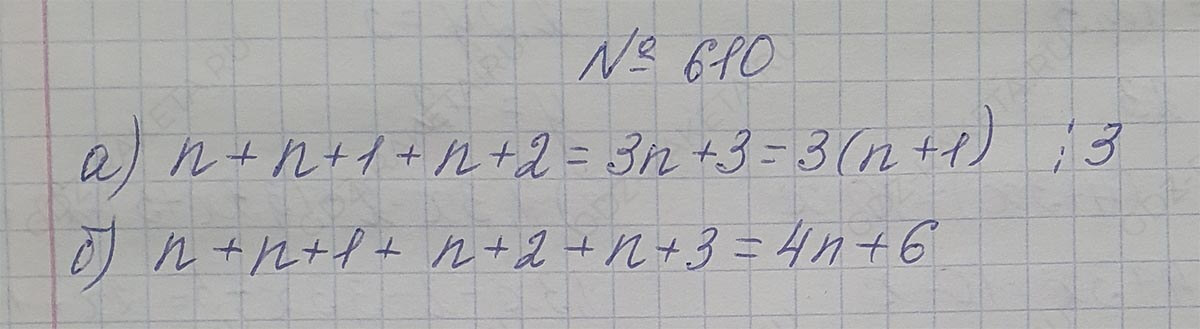 № 610
а) n + n + 1 + n + 2 = 3n + 3 = 3(n + 1) ⋮ 3
б) n + n + 1 + n + 2 + n + 3 = 4n + 6